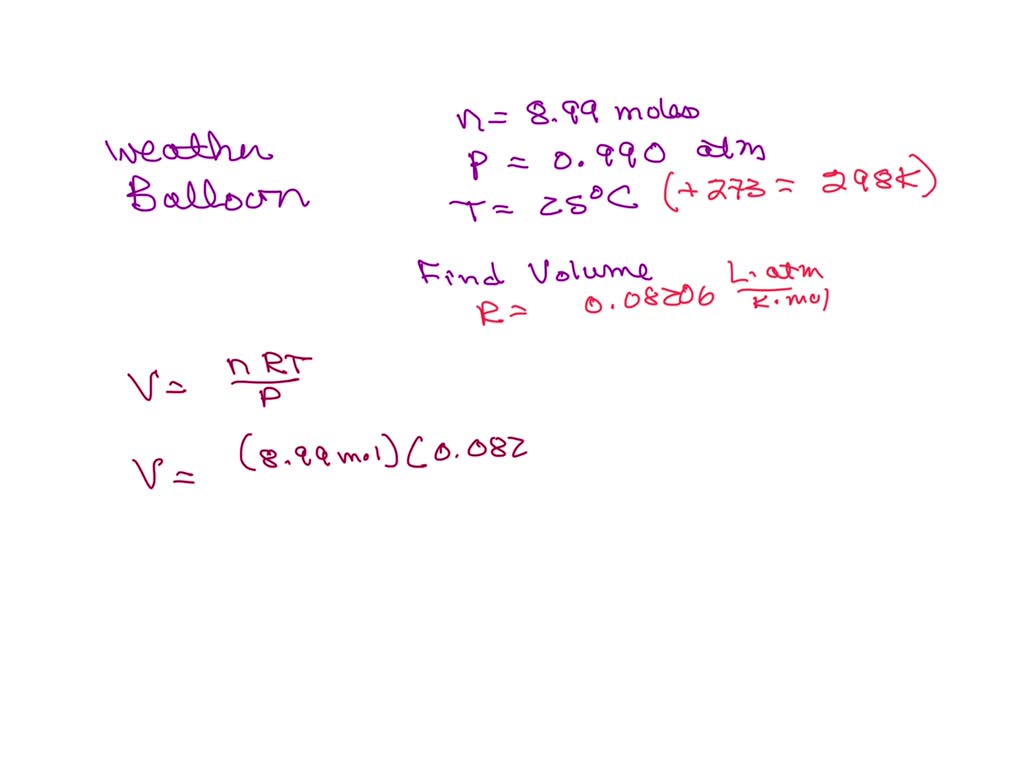 Weather
Balloon
n = 8.99 moles
P = 0.990 atm
T = 25°C (+273 = 298K)
Find Volume
R = 0.08206 L·atm / K·mol
V = nRT / P
V = (8.99 mol)(0.082